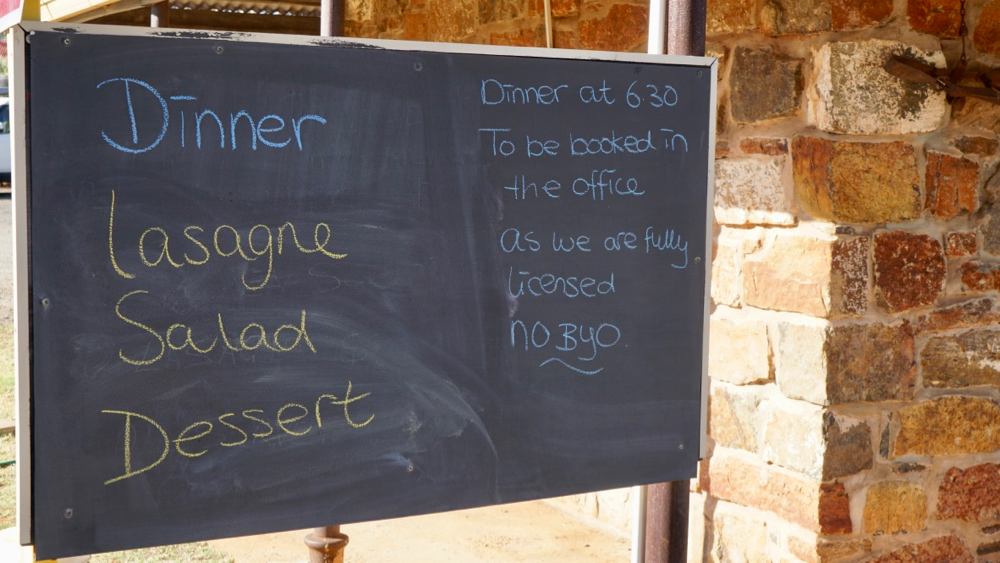 Dinner
Lasagne
Salad
Dessert
Dinner at 6.30
To be booked in
the office
as we are fully
licensed
no Byo.